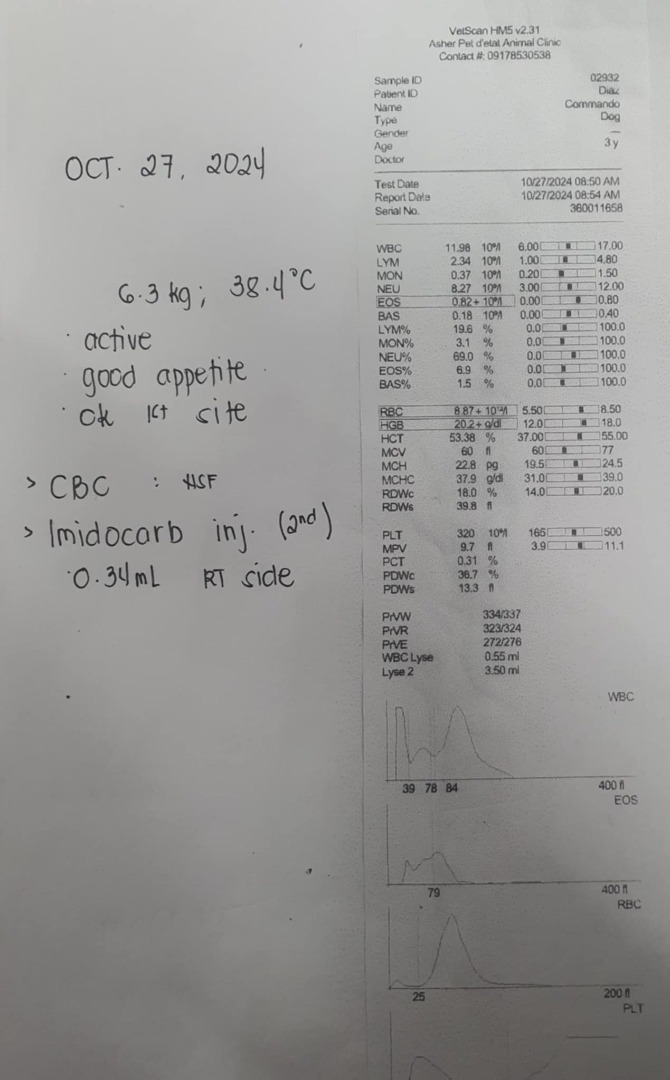 OCT. 27, 2024
6.3 kg; 38.4°C
· active
· good appetite
· ok 1ct site
> CBC : NSF
> Imidocarb inj. (2nd)
· 0.34mL RT side
VetScan HM5 v2.31
Asher Pet d'etat Animal Clinic
Contact #: 09178530538
Sample ID 02932
Patient ID Diaz
Name Commando
Type Dog
Gender —
Age 3 y
Doctor
Test Date 10/27/2024 08:50 AM
Report Date 10/27/2024 08:54 AM
Serial No. 360011658
WBC 11.98 10⁹/l 6.00 17.00
LYM 2.34 10⁹/l 1.00 4.80
MON 0.37 10⁹/l 0.20 1.50
NEU 8.27 10⁹/l 3.00 12.00
EOS 0.82+ 10⁹/l 0.00 0.80
BAS 0.18 10⁹/l 0.00 0.40
LYM% 19.6 % 0.0 100.0
MON% 3.1 % 0.0 100.0
NEU% 69.0 % 0.0 100.0
EOS% 6.9 % 0.0 100.0
BAS% 1.5 % 0.0 100.0
RBC 8.87+ 10¹²/l 5.50 8.50
HGB 20.2+ g/dl 12.0 18.0
HCT 53.38 % 37.00 55.00
MCV 60 fl 60 77
MCH 22.8 pg 19.5 24.5
MCHC 37.9 g/dl 31.0 39.0
RDWc 18.0 % 14.0 20.0
RDWs 39.8 fl
PLT 320 10⁹/l 165 500
MPV 9.7 fl 3.9 11.1
PCT 0.31 %
PDWc 36.7 %
PDWs 13.3 fl
PrVW 334/337
PrVR 323/324
PrVE 272/276
WBC Lyse 0.55 ml
Lyse 2 3.50 ml
WBC
39 78 84 400 fl
EOS
79 400 fl
RBC
25 200 fl
PLT